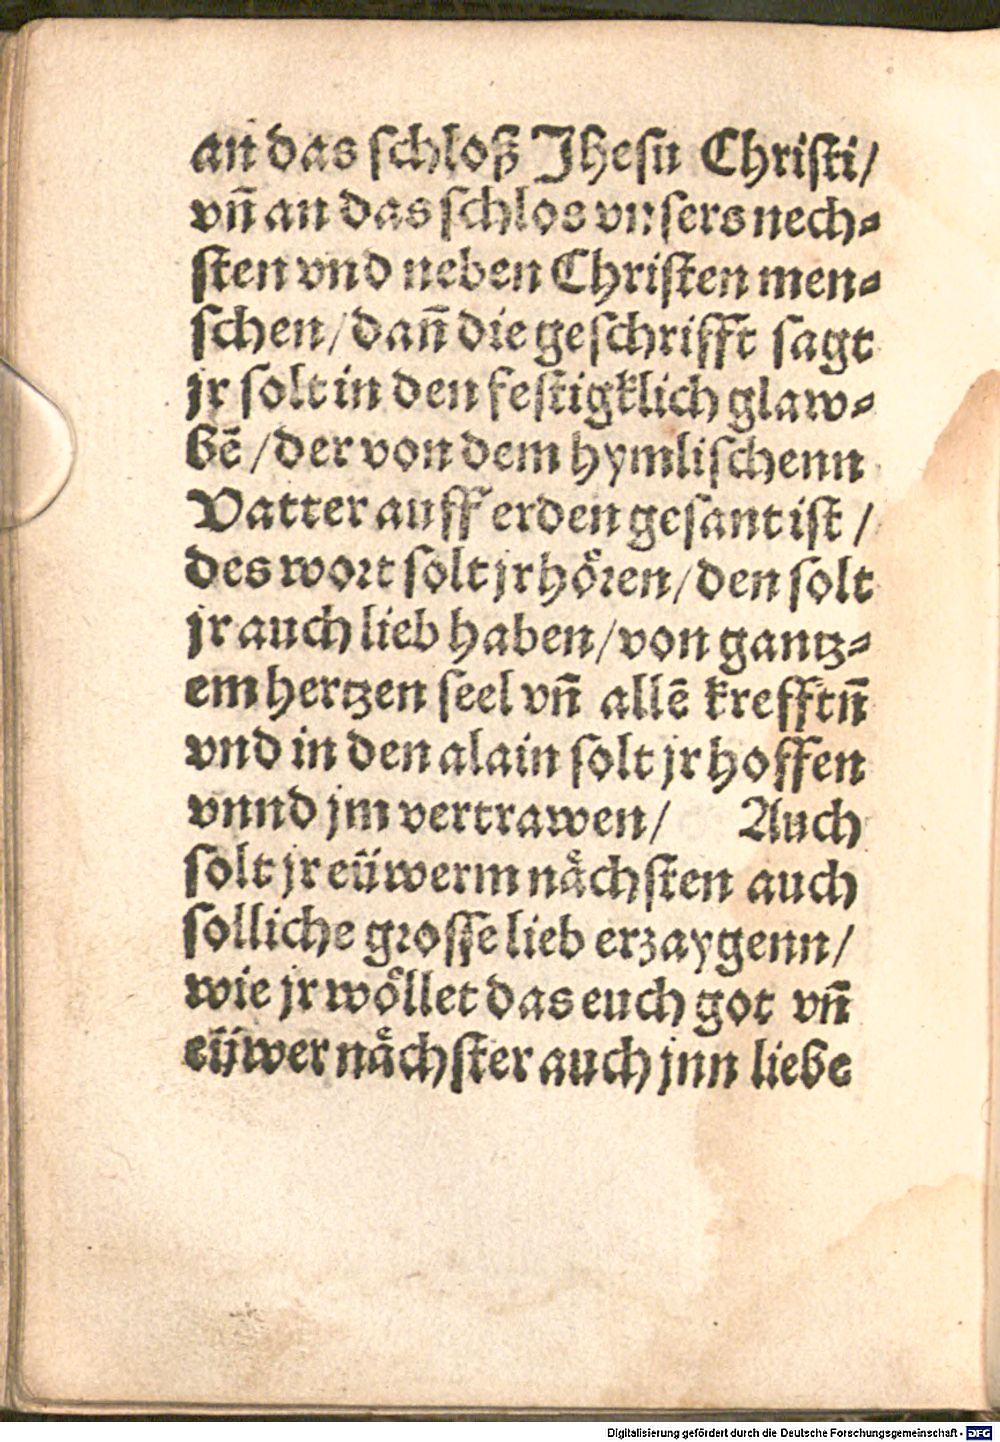 an das schloß Jhesu Christi/
vn̄ an das schlos vnsers nech⸗
sten vnd neben Christen men⸗
schen/dan̄ die geschrifft sagt
jr solt in den festigklich glaw⸗
bē/der von dem hymlischenn
Vatter auff erden gesant ist/
des wort solt jr hoͤren/den solt
jr auch lieb haben/von gantz⸗
em hertzen seel vn̄ allē krefftn̄
vnd in den alain solt jr hoffen
vnnd jm vertrawen/ Auch
solt jr eüwerm naͤchsten auch
solliche grosse lieb erzaygenn/
wie jr woͤllet das euch got vn̄
eüwer naͤchster auch jnn liebe
Digitalisierung gefördert durch die Deutsche Forschungsgemeinschaft - DFG